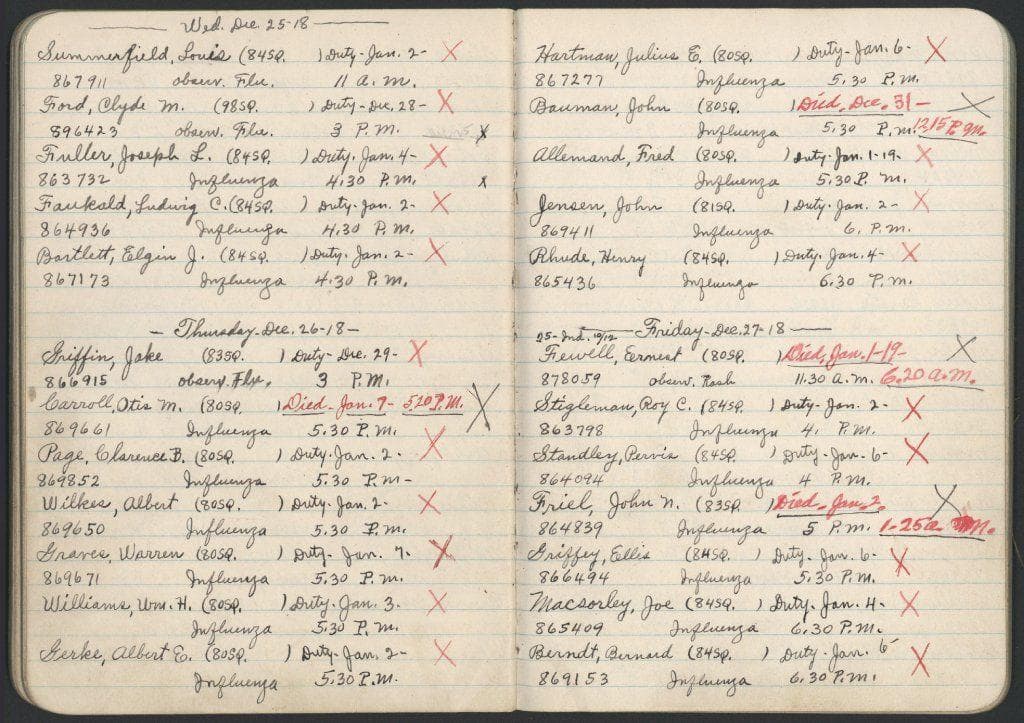 Wed. Dec. 25-18
Summerfield, Louis (84SQ. ) Duty-Jan. 2- X
867911 observ. Flu. 11 A.M.
Ford, Clyde M. (98SQ. ) Duty-Dec. 28- X
896423 observ. Flu. 3 P.M. x
Fuller, Joseph L. (84SQ. ) Duty-Jan. 4- X
863732 Influenza 4.30 P.M. x
Faukald, Ludwig C. (84SQ. ) Duty-Jan. 2- X
864936 Influenza 4.30 P.M.
Bartlett, Elgin J. (84SQ. ) Duty-Jan. 2- X
867173 Influenza 4.30 P.M.
- Thursday-Dec. 26-18-
Griffin, Jake (83SQ. ) Duty-Dec. 29- X
866915 observ. Flu. 3 P.M.
Carroll, Otis M. (80SQ. ) Died-Jan. 7- 5.20 P.M. X
869661 Influenza 5.30 P.M.
Page, Clarence B. (80SQ. ) Duty-Jan. 2- X
869852 Influenza 5.30 P.M-
Wilkes, Albert (80SQ. ) Duty-Jan. 2- X
869650 Influenza 5.30 P.M.
Graves, Warren (80SQ. ) Duty-Jan. 7- X
869671 Influenza 5.30 P.M.
Williams, Wm. H. (80SQ. ) Duty-Jan. 3. X
Influenza 5.30 P.M.
Gerke, Albert E. (80SQ. ) Duty-Jan. 2- X
Influenza 5.30 P.M.
Hartman, Julius E. (80SQ. ) Duty-Jan. 6- X
867277 Influenza 5.30 P.M.
Bauman, John (80SQ. ) Died. Dec. 31- X
Influenza 5.30 P.M. 12.15 P.M.
Allemand, Fred (80SQ. ) Duty-Jan. 1-19- X
Influenza 5.30 P.M.
Jensen, John (81SQ. ) Duty-Jan. 2- X
869411 Influenza 6. P.M.
Rhude, Henry (84SQ. ) Duty-Jan. 4- X
865436 Influenza 6.30 P.M.
25-Ind. 10/12 - Friday-Dec. 27-18-
Fewell, Eernest (80SQ. ) Died, Jan. 1-19- X
878059 observ. Rash 11.30 A.M. 6.20 A.M.
Stigleman, Roy C. (84SQ. ) Duty-Jan. 2- X
863798 Influenza 4. P.M.
Standley, Pervis (84SQ. ) Duty-Jan. 6- X
864094 Influenza 4 P.M.
Friel, John N. (83SQ. ) Died-Jan. 2. X
864839 Influenza 5 P.M. 1-25 a. M.
Griffey, Ellis (84SQ. ) Duty-Jan. 6- X
866494 Influenza 5.30 P.M.
Macsorley, Joe (84SQ. ) Duty-Jan. 4- X
865409 Influenza 6.30 P.M.
Berndt, Bernard (84SQ. ) Duty-Jan. 6- X
869153 Influenza 6.30 P.M.